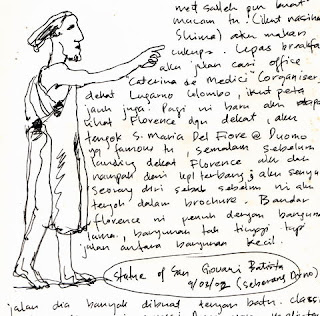 met salleh pun buat
macam tu (ikut nasihat
Shima) aku makan
cukup2. Lepas breakfa
aku jalan cari office
Caterina de Medici (organiser)
dekat Lugarno Colombo, ikut peta
jauh juga. Pagi ni baru aku dapat
lihat Florence dgn dekat, aku
tengok S. Maria Del Fiore @ Duomo
yg famous tu, semalam sebelum
landing dekat Florence aku dah
nampak dari kpl terbang; aku senyum
seorang diri sebab sebelum ni aku
tengok dalam brochure. Bandar
florence ni penuh dengan bangunan
lama, bangunan tak tinggi tapi
jalan antara bangunan kecil.
Statue of San Giovani Batista
9/03/02 (seberang Duomo)
jalan dia banyak dibuat dengan batu. classi